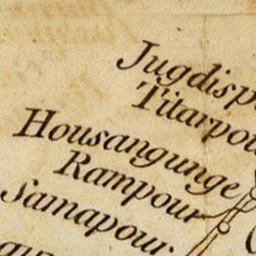 Jugdisp
Titarpou
Housangunge
Rampour
Samapour